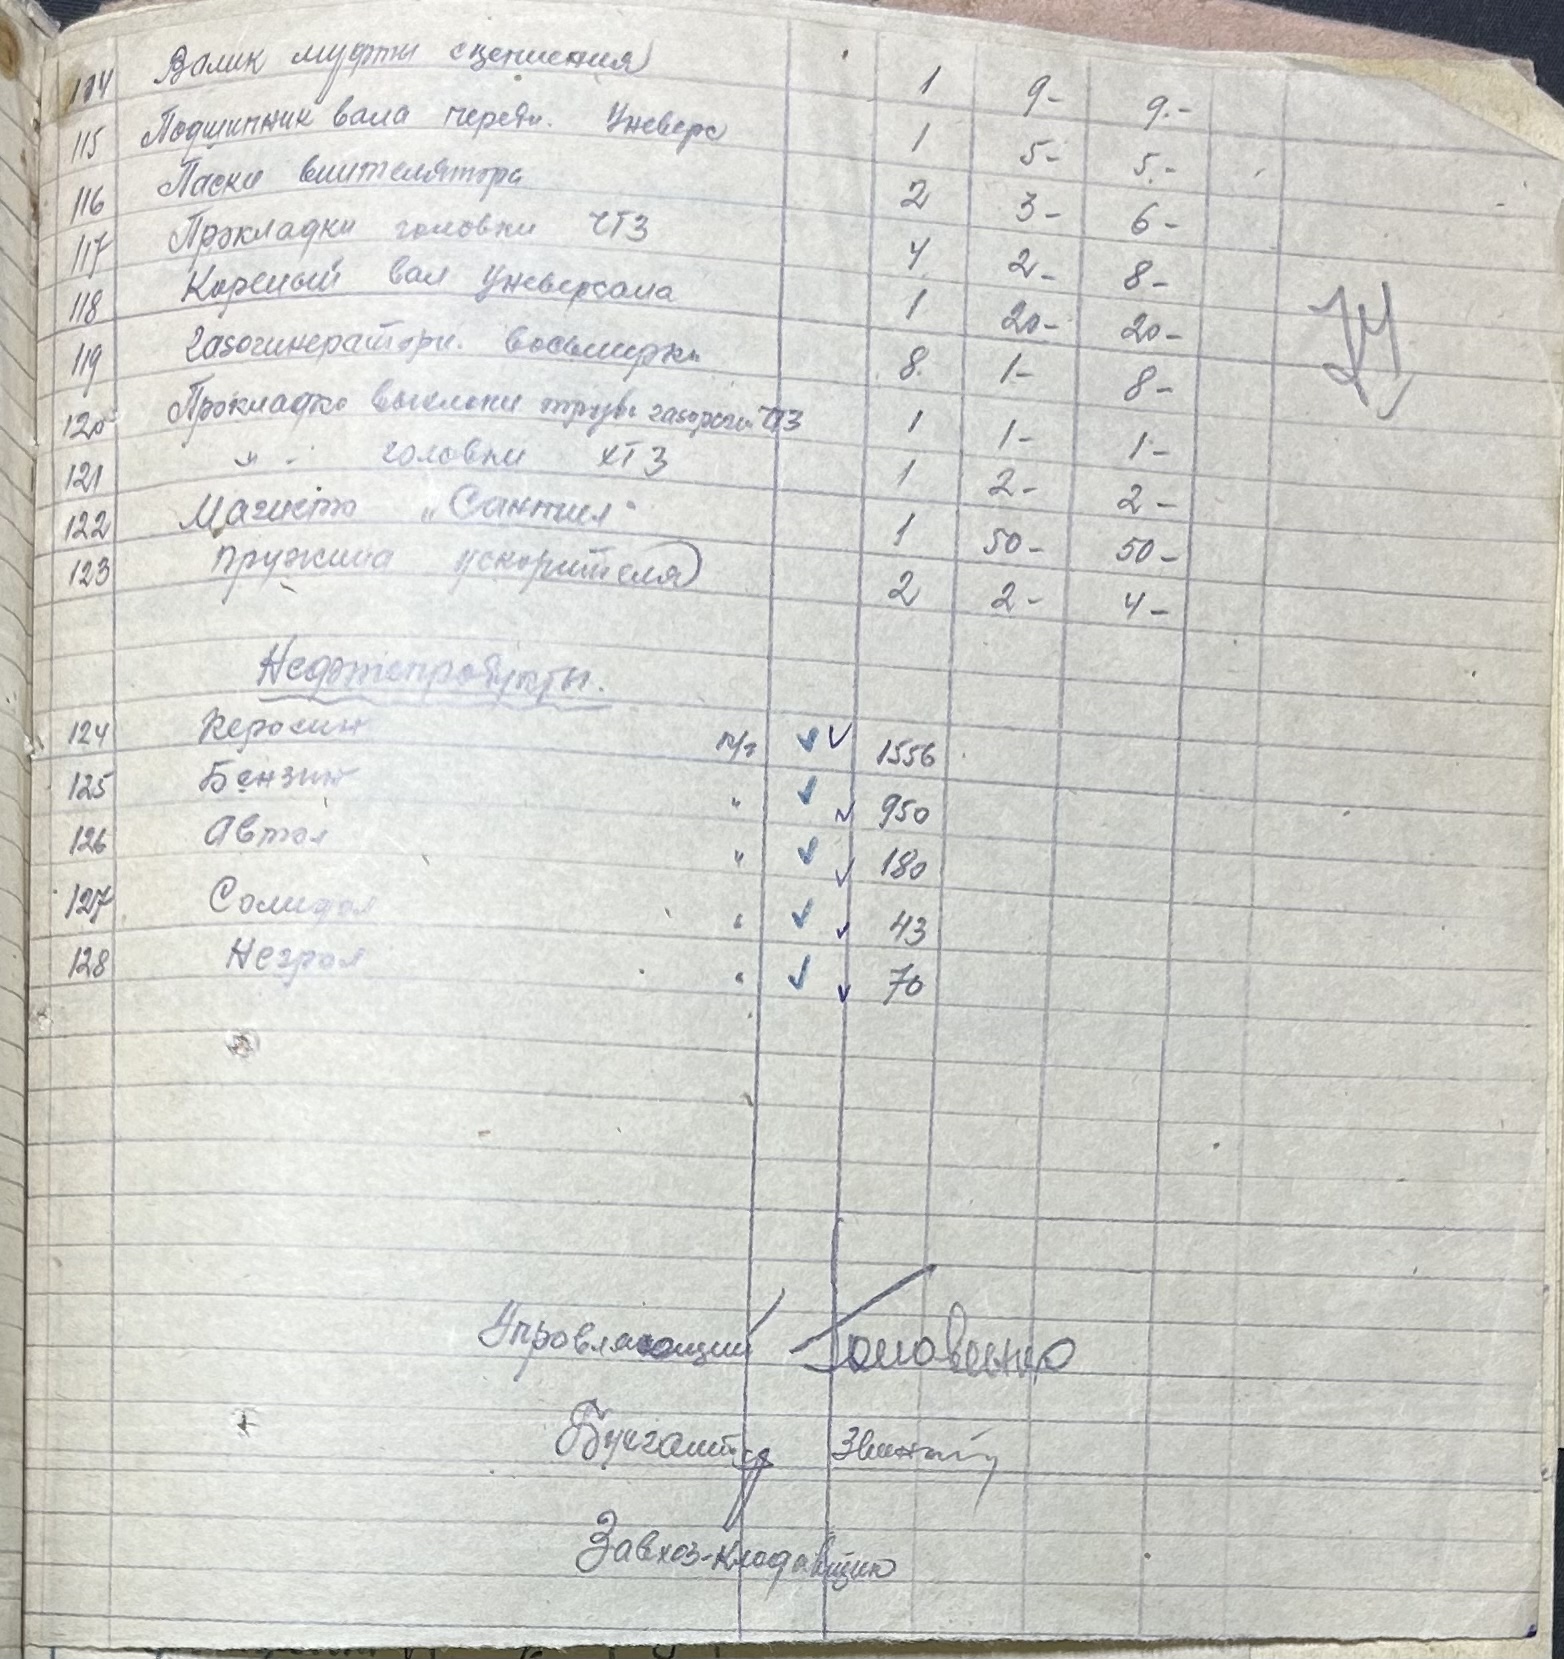 114 Валик муфты сцепления 1 9- 9.-
115 Подшипник вала передн. Уневерс 1 5- 5.-
116 Паски винтелятора 2 3- 6-
117 Прокладки головки ЧТЗ 4 2- 8-
118 Кореный вал Уневерсала 1 20- 20-
119 Газогинераторн. восьмерки 8 1- 8-
120 Прокладка выхлопн трубы ЧТЗ 1 1- 1-
121 -"- головки ХТЗ 1 2- 2-
122 Магнето „Сантил" 1 50- 50-
123 Пружина ускорителя 2 2- 4-
Нефтепродукты.
124 Керосин 1556
125 Бензин " 950
126 Автол " 180
127 Солидол " 43
128 Негрол " 70
Упровляющий
Бухгалтер
Завхоз-кладовщик